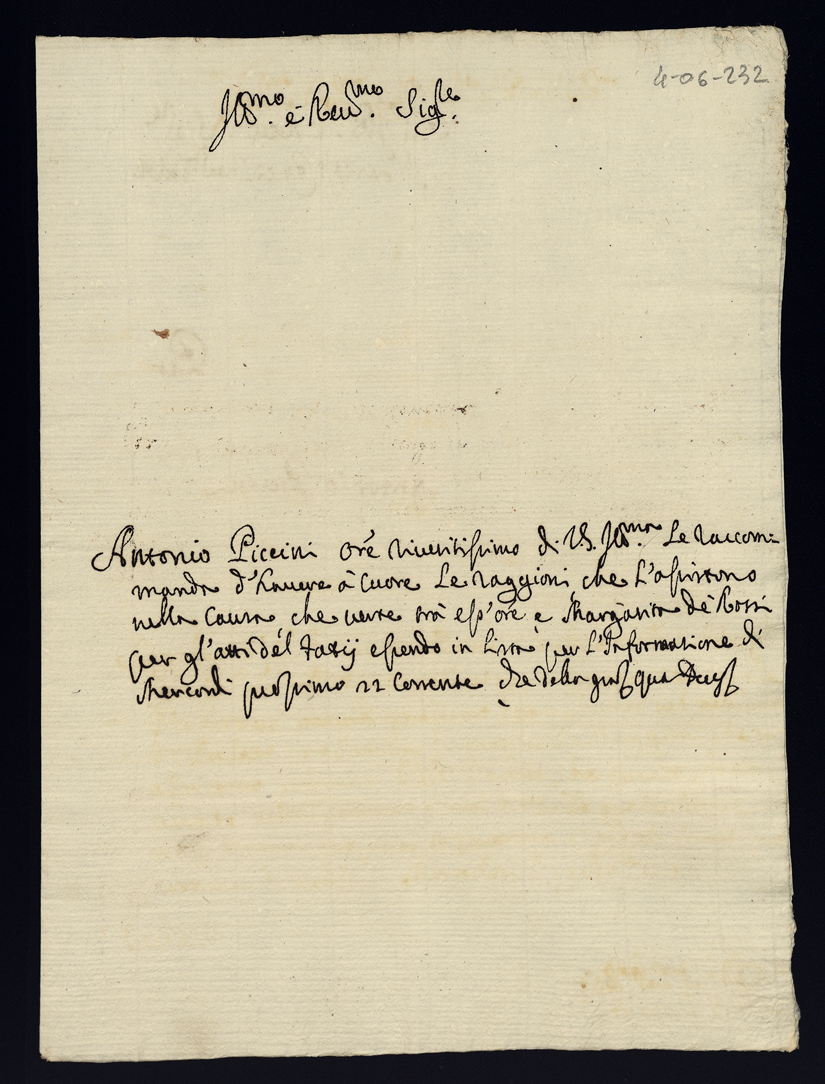 4-06-232
Ill.mo e Rev.mo Sig.re
Antonio Piccini Ore riveritissimo di V.S. Ill.ma Le raccom=
manda d'havere à Cuore Le raggioni, che L'assistono
nella Causa, che verte trà esso Ore, e Margarita de Rossi
per gl'atti del Tassij essendo in Lista per L'Informatione di
Mercordì prossimo 22 Corrente che della grà qua Deus